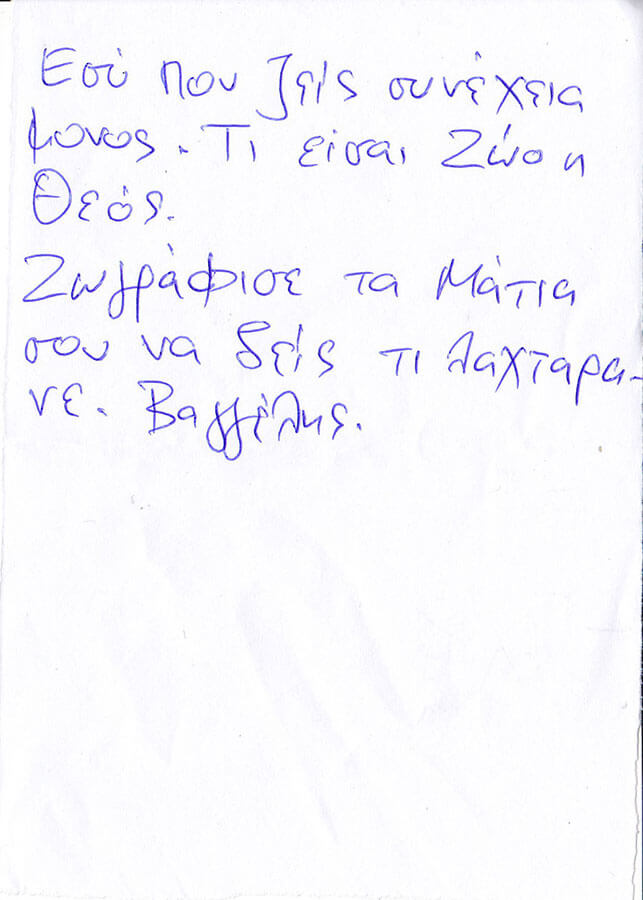 Εσύ που ζείς συνέχεια
μονος. Τι είσαι Ζώο η
Θεός.
Ζωγράφισε τα Μάτια
σου να δείς τι λαχταρα-
νε. Βαγγέλης.